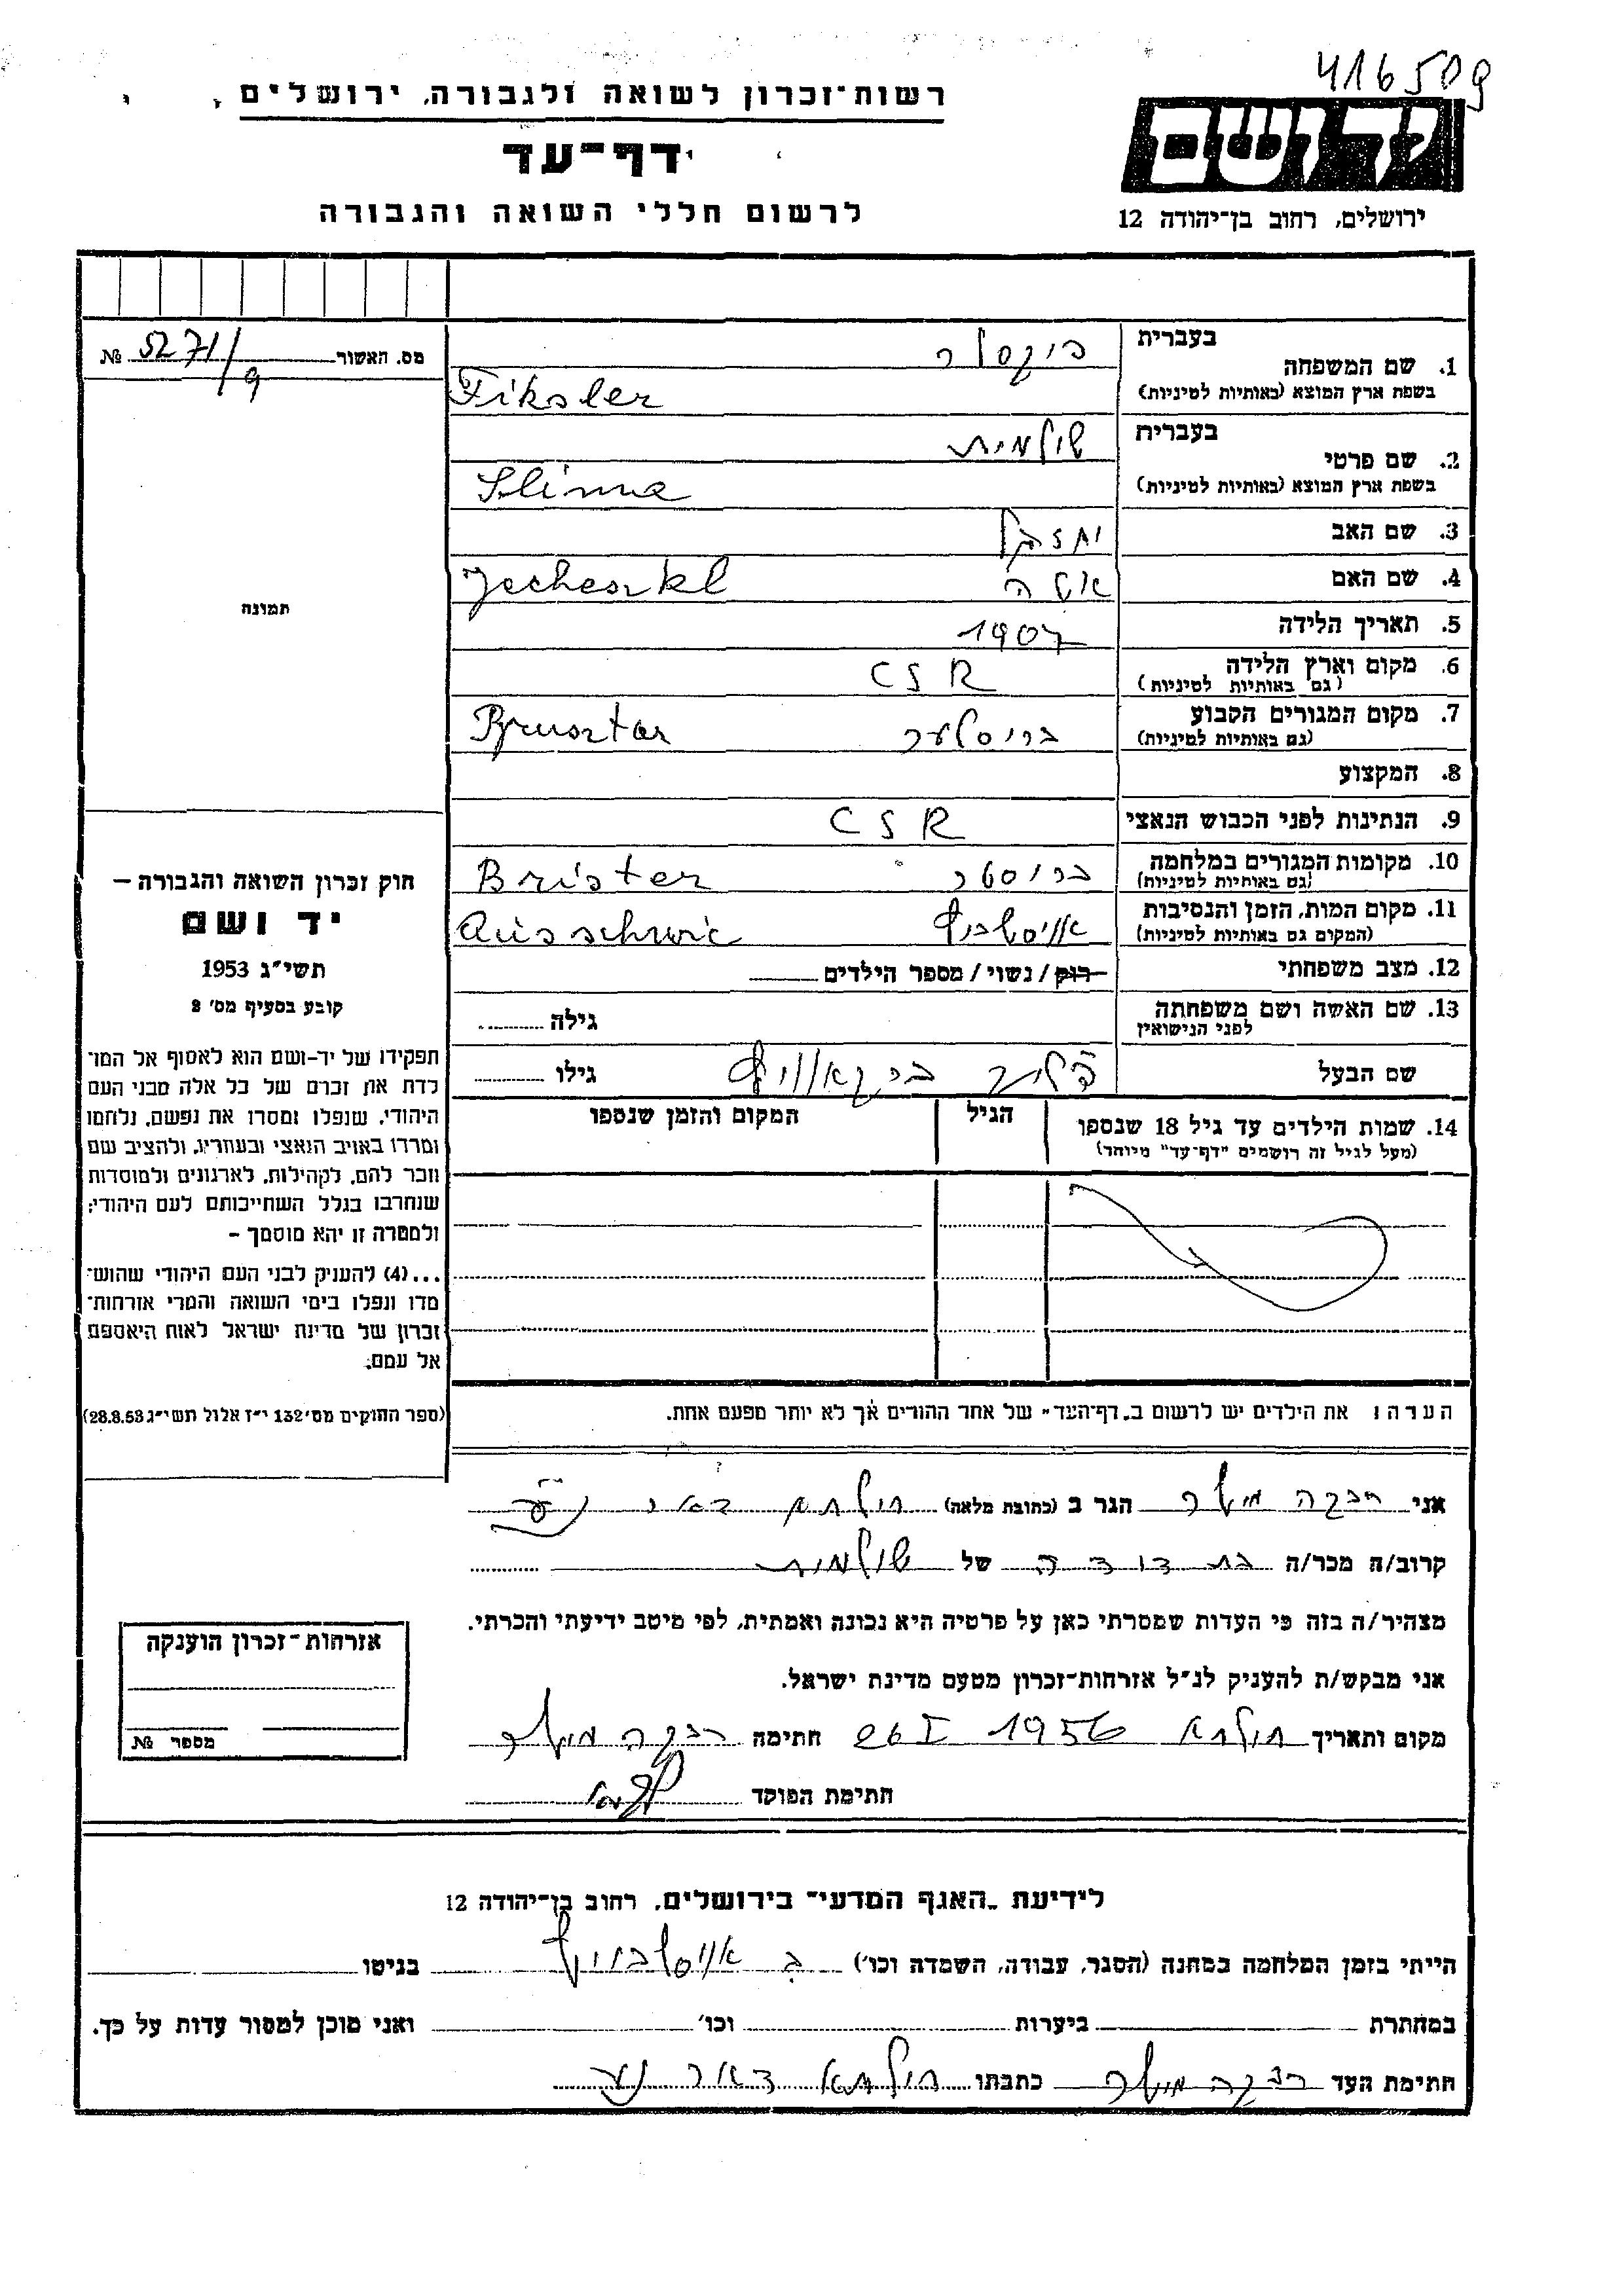 416509
רשות־זכרון לשואה ולגבורה, ירושלים
דף־עד
לרשום חללי השואה והגבורה
ידושם
ירושלים, רחוב בן־יהודה 12
מס. האשור № 5271/9
תמונה
חוק זכרון השואה והגבורה —
יד ושם
תשי״ג 1953
קובע בסעיף מס׳ 2
תפקידו של יד-ושם הוא לאסוף אל המו־
לדת את זכרם של כל אלה מבני העם
היהודי, שנפלו ומסרו את נפשם, נלחמו
ומרדו באויב הנאצי ובעוזריו, ולהציב שם
וזכר להם, לקהילות, לארגונים ולמוסדות
שנחרבו בגלל השתייכותם לעם היהודי;
ולמטרה זו יהא מוסמך —
...(4) להעניק לבני העם היהודי שהוש־
מדו ונפלו בימי השואה והמרי אזרחות־
זכרון של מדינת ישראל לאות היאספם
אל עמם.
(ספר החוקים מס׳ 132 י״ז אלול תשי״ג 28.8.53)
1. שם המשפחה
בעברית פיקסלר
בשפת ארץ המוצא (באותיות לטיניות) Fiksler
2. שם פרטי
בעברית שולמית
בשפת ארץ המוצא (באותיות לטיניות)
3. שם האב
4. שם האם Jecheszkl
5. תאריך הלידה 1907
6. מקום וארץ הלידה CSR
(גם באותיות לטיניות)
7. מקום המגורים הקבוע Brusztar
(גם באותיות לטיניות)
8. המקצוע
9. הנתינות לפני הכבוש הנאצי CSR
10. מקומות המגורים במלחמה ברוסטר Brister
(גם באותיות לטיניות)
11. מקום המות, הזמן והנסיבות אוישביץ Ausschwic
(המקום גם באותיות לטיניות)
12. מצב משפחתי רוק / נשוי / מספר הילדים
13. שם האשה ושם משפחתה
לפני הנישואין גילה
שם הבעל גילו
14. שמות הילדים עד גיל 18 שנספו הגיל המקום והזמן שנספו
(מעל לגיל זה רושמים "דף־עד" מיוחד)
הערה: את הילדים יש לרשום ב„דף־העד״ של אחד ההורים אך לא יותר מפעם אחת.
אני רבקה מילר הגר ב (כתובת מלאה) חולתא דאר נע
קרוב/ה מכר/ה בת דודה של שולמית
מצהיר/ה בזה כי העדות שמסרתי כאן על פרטיה היא נכונה ואמתית, לפי מיטב ידיעתי והכרתי.
אני מבקש/ת להעניק לנ״ל אזרחות־זכרון מטעם מדינת ישראל.
מקום ותאריך חולתא 26 I 1956 חתימה רבקה מילר
חתימת הפוקד
אזרחות־זכרון הוענקה
מספר №
לידיעת „האגף המדעי״ בירושלים, רחוב בן־יהודה 12
הייתי בזמן המלחמה במחנה (הסגר, עבודה, השמדה וכו׳) ב אוישביץ בגיטו
במחתרת ביערות וכו׳ ואני מוכן למסור עדות על כך.
חתימת העד רבקה מילר כתבתו חולתא דאר נע